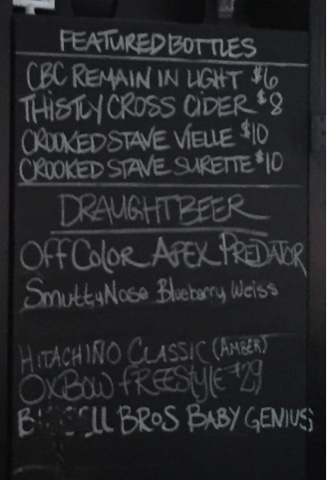 FEATURED BOTTLES
CBC REMAIN IN LIGHT $6
THISTLY CROSS CIDER $8
CROOKED STAVE VIELLE $10
CROOKED STAVE SURETTE $10
DRAUGHT BEER
Off Color APEX PREDATOR
SmuttyNose Blueberry Weiss
HITACHINO CLASSIC (AMBER)
OXBOW FREESTYLE #29
BROS BABY GENIUS